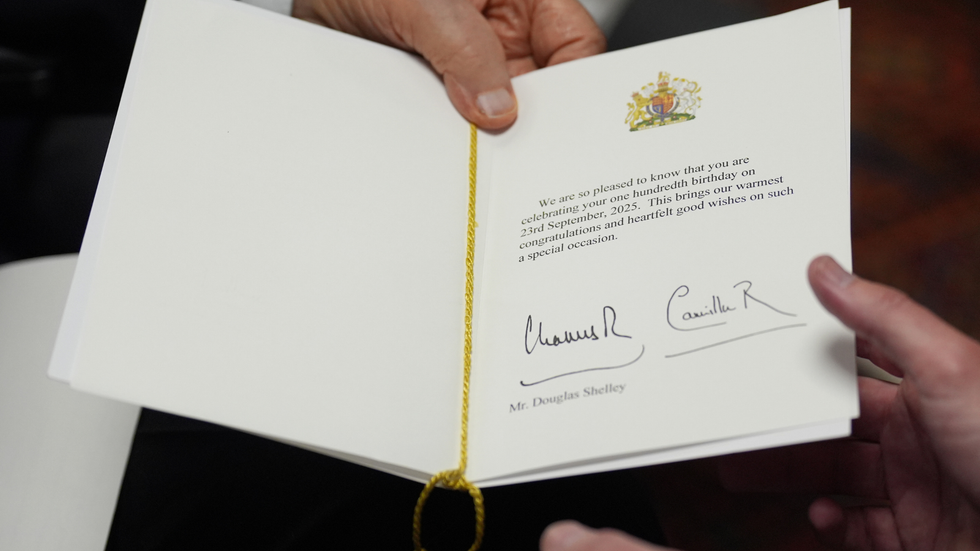 We are so pleased to know that you are
celebrating your one hundredth birthday on
23rd September, 2025. This brings our warmest
congratulations and heartfelt good wishes on such
a special occasion.
Charles R Camilla R
Mr. Douglas Shelley